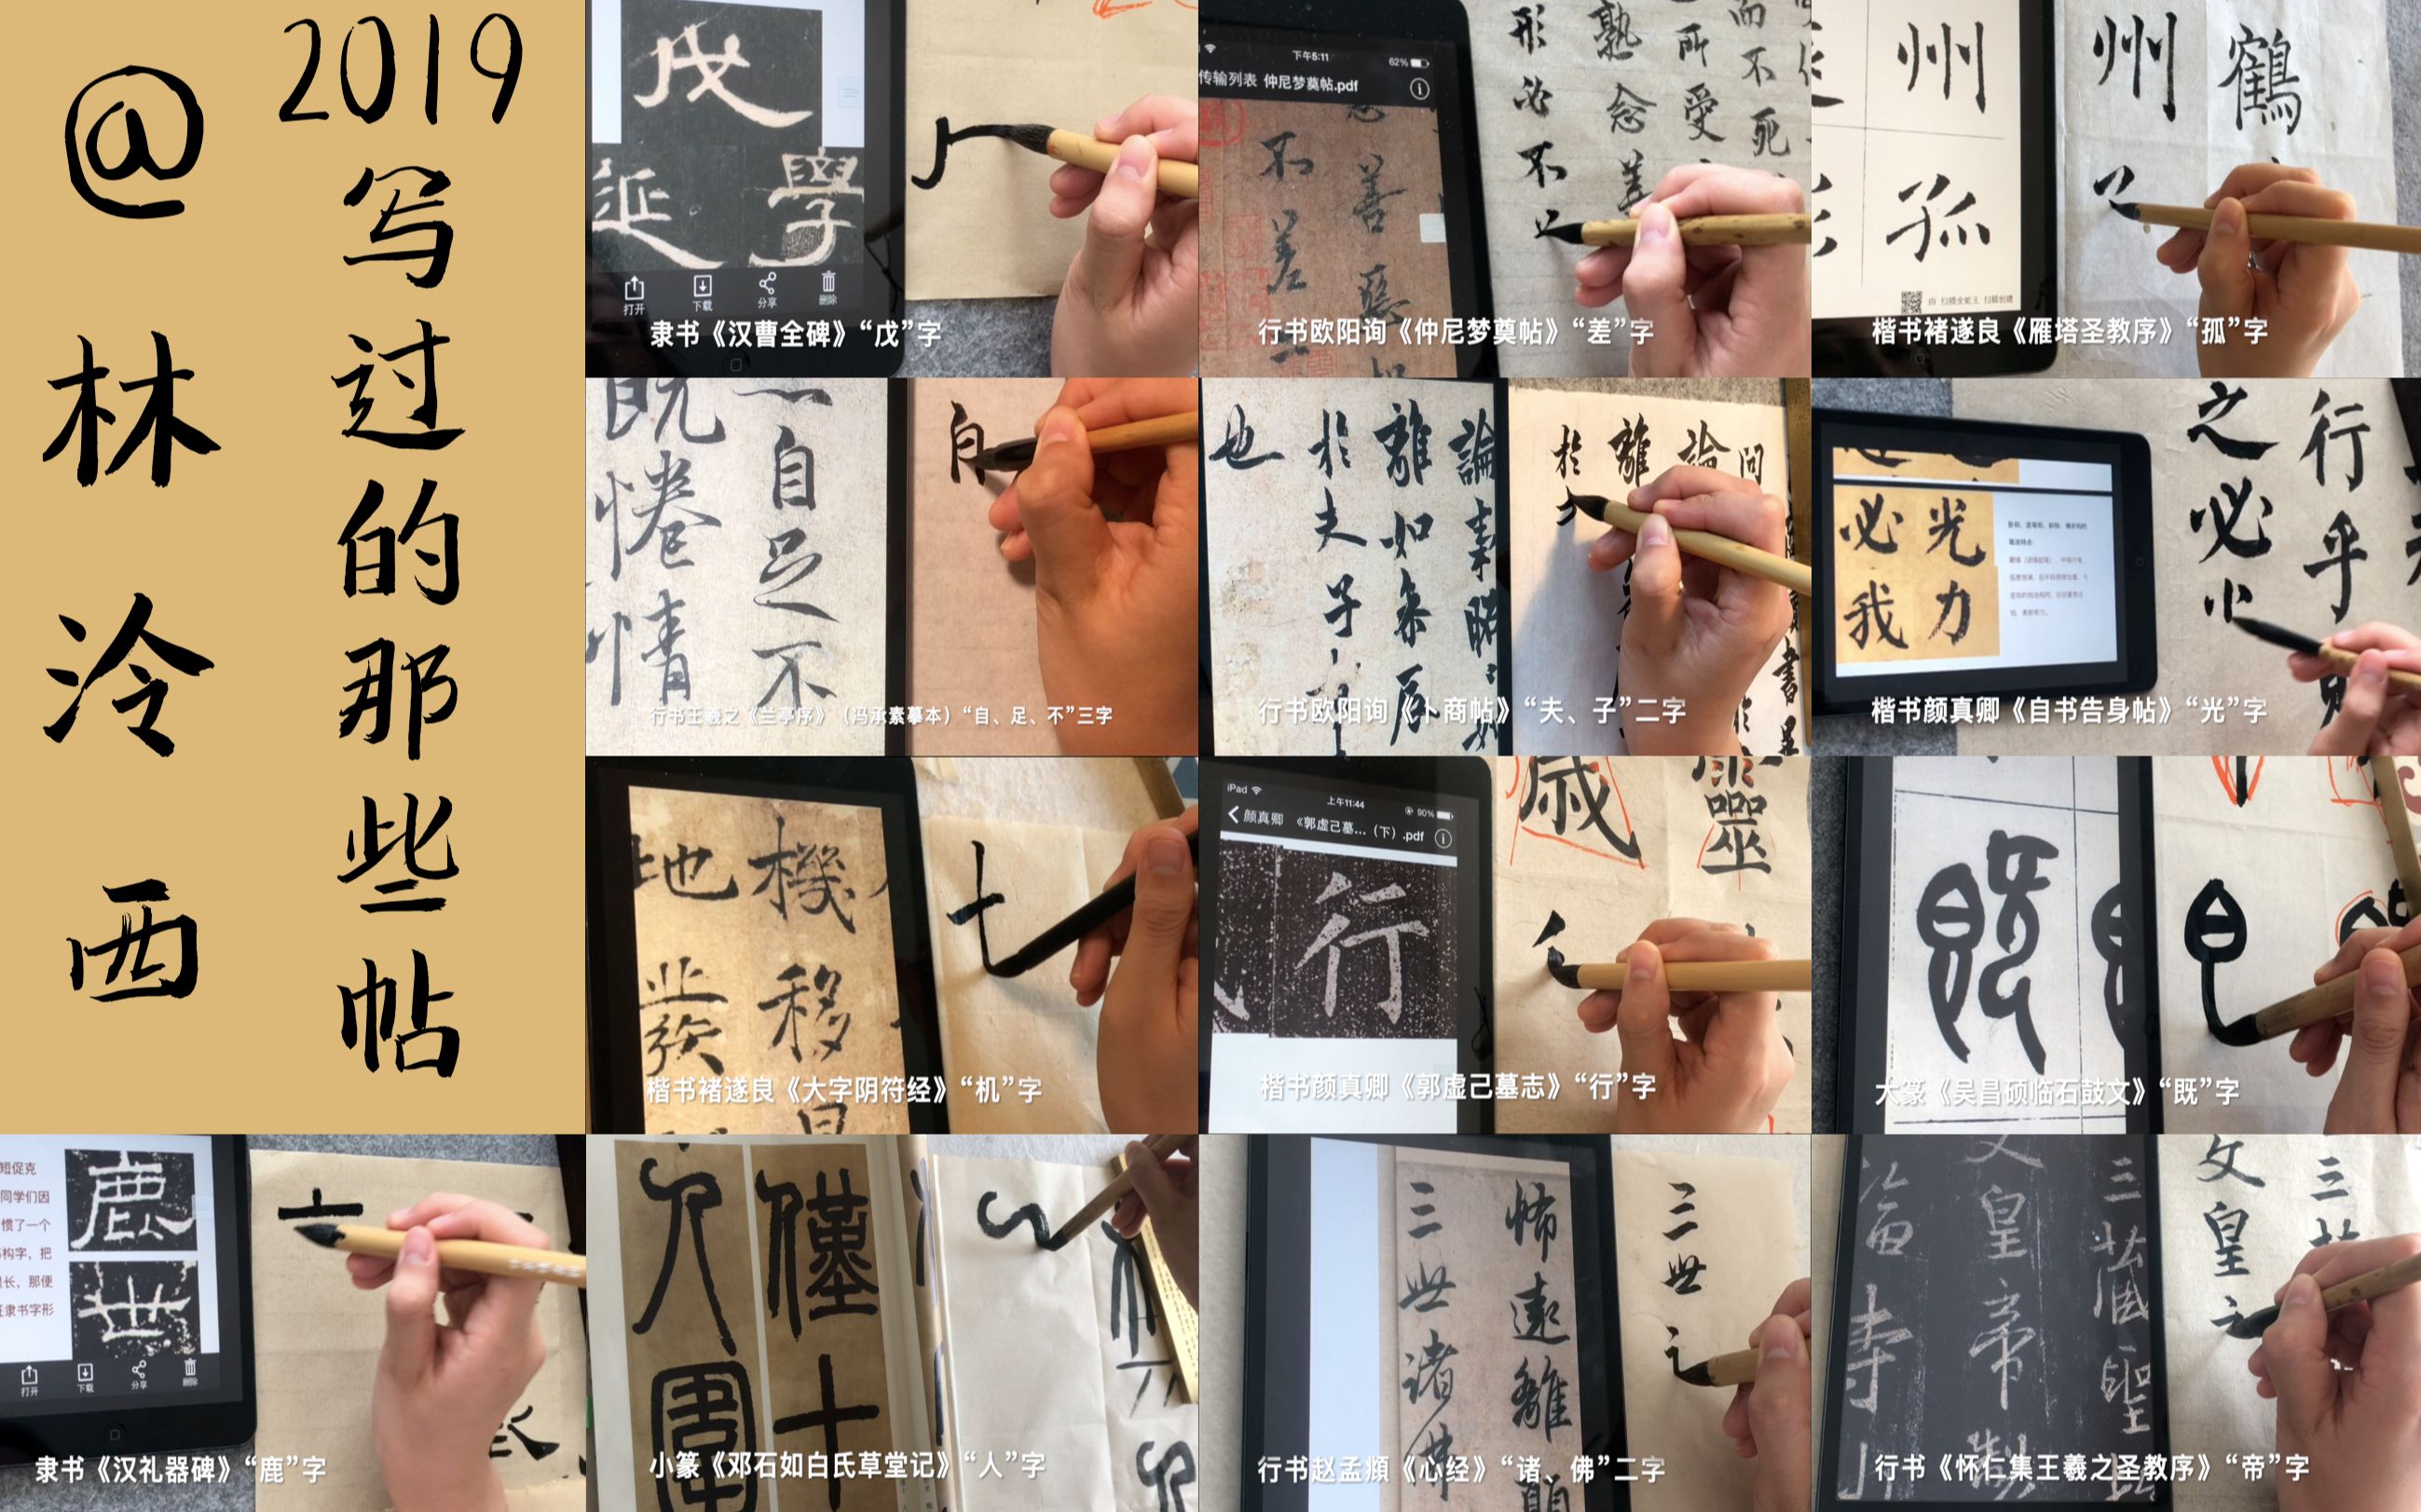 2019写过的那些帖
@林泠西
戊
延
學
打开
下载
分享
删除
隶书《汉曹全碑》“戊”字
下午5:11
62%
传输列表 仲尼梦奠帖.pdf
善
不
差
形必不
熟念差
所受
而不死
行书欧阳询《仲尼梦奠帖》“差”字
州
孤
州
鶴
由 扫描全能王 扫描创建
楷书褚遂良《雁塔圣教序》“孤”字
一自足不
既惓情
自
行书王羲之《兰亭序》(冯承素摹本)“自、足、不”三字
論
離如
於夫子
也
問
論
離
於
書
行书欧阳询《卜商帖》“夫、子”二字
光力
必我
行乎
之必
楷书颜真卿《自书告身帖》“光”字
機移
地發
楷书褚遂良《大字阴符经》“机”字
iPad
上午11:44
90%
颜真卿 《郭虚己墓...（下）.pdf
行
歲
靈
楷书颜真卿《郭虚己墓志》“行”字
既
大篆《吴昌硕临石鼓文》“既”字
短促克
同学们因
惯了一个
构字，把
长，那便
隶书字形
鹿
世
打开
下载
分享
删除
隶书《汉礼器碑》“鹿”字
僅十
人圍
小篆《邓石如白氏草堂记》“人”字
怖遠離顛
三世諸佛
三世
行书赵孟頫《心经》“诸、佛”二字
三藏聖
文皇帝製
寺
三
文皇
行书《怀仁集王羲之圣教序》“帝”字